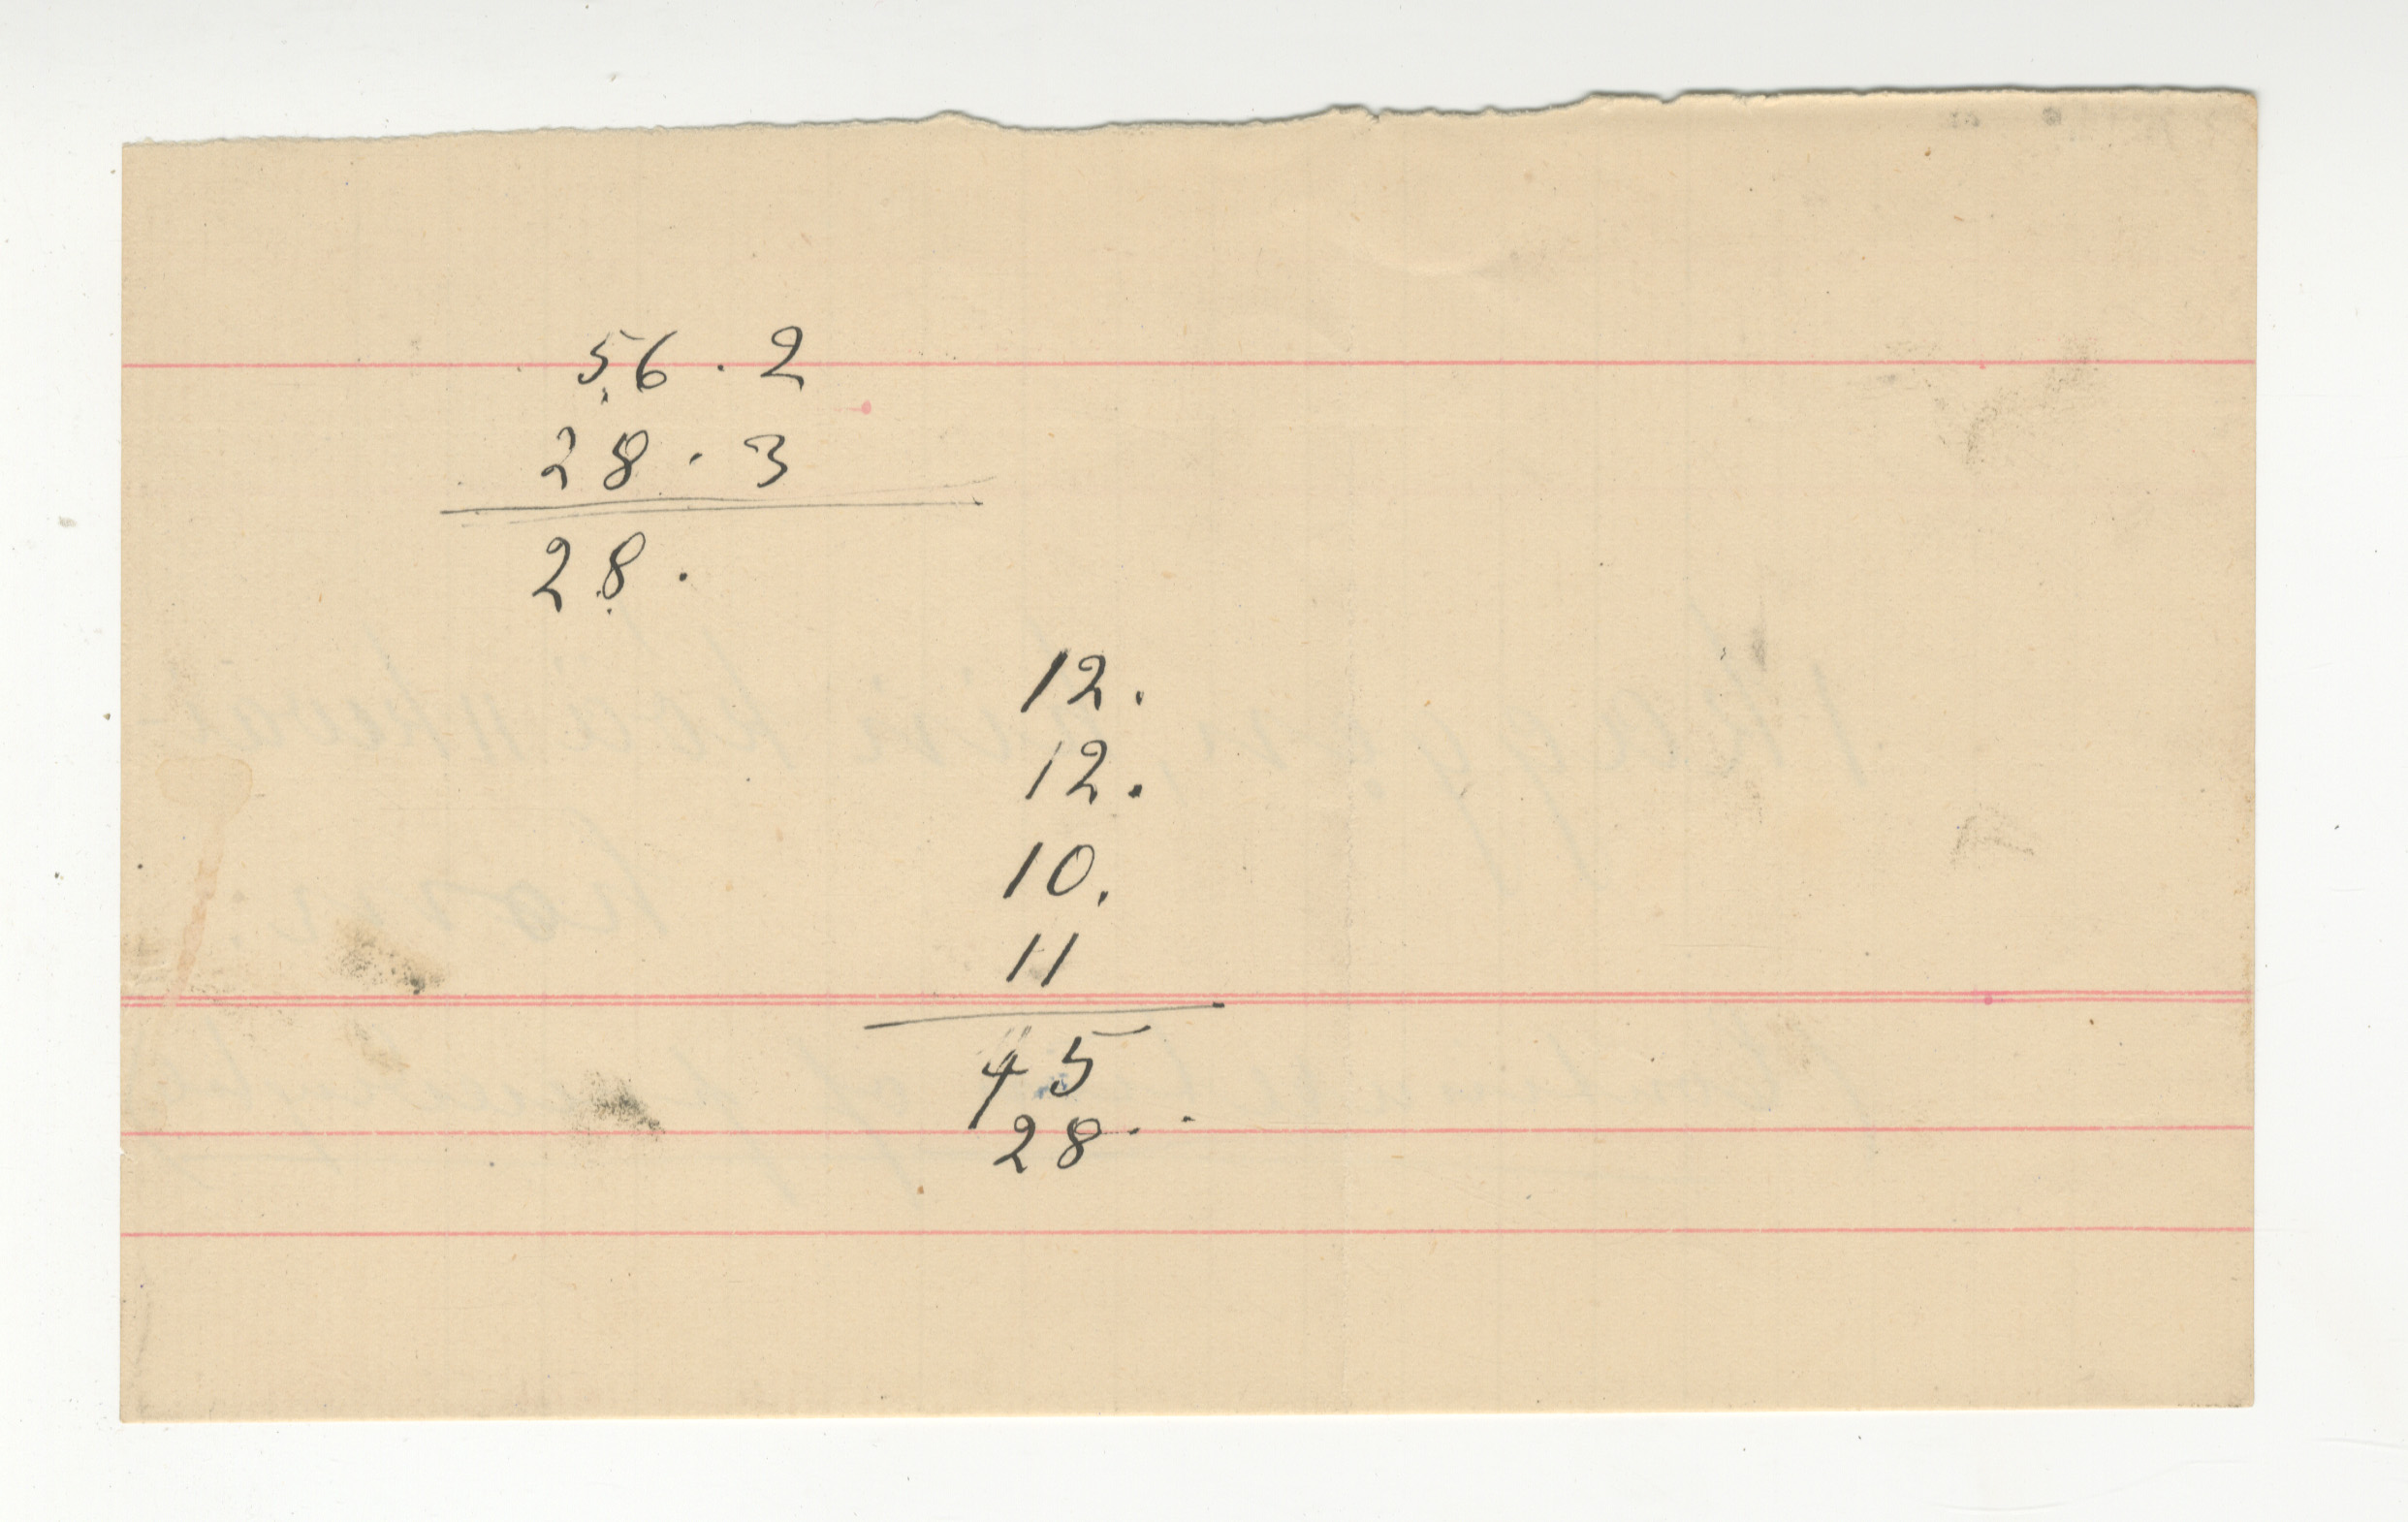 56 . 2
28 . 3
28 .
12.
12.
10.
11
45
28 . .